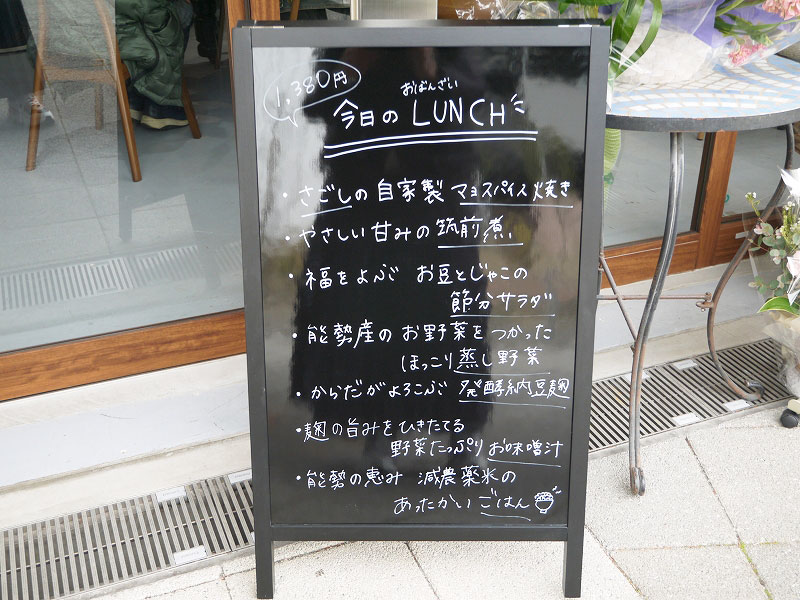 1,380円
おばんざい
今日の LUNCH
・さごしの自家製 マヨスパイス焼き
・やさしい甘みの筑前煮
・福をよぶ お豆とじゃこの
節分サラダ
・能勢産の お野菜をつかった
ほっこり蒸し野菜
・からだがよろこぶ 発酵納豆麹
・麹の旨みをひきたてる
野菜たっぷりお味噌汁
・能勢の恵み 減農薬米の
あったかいごはん